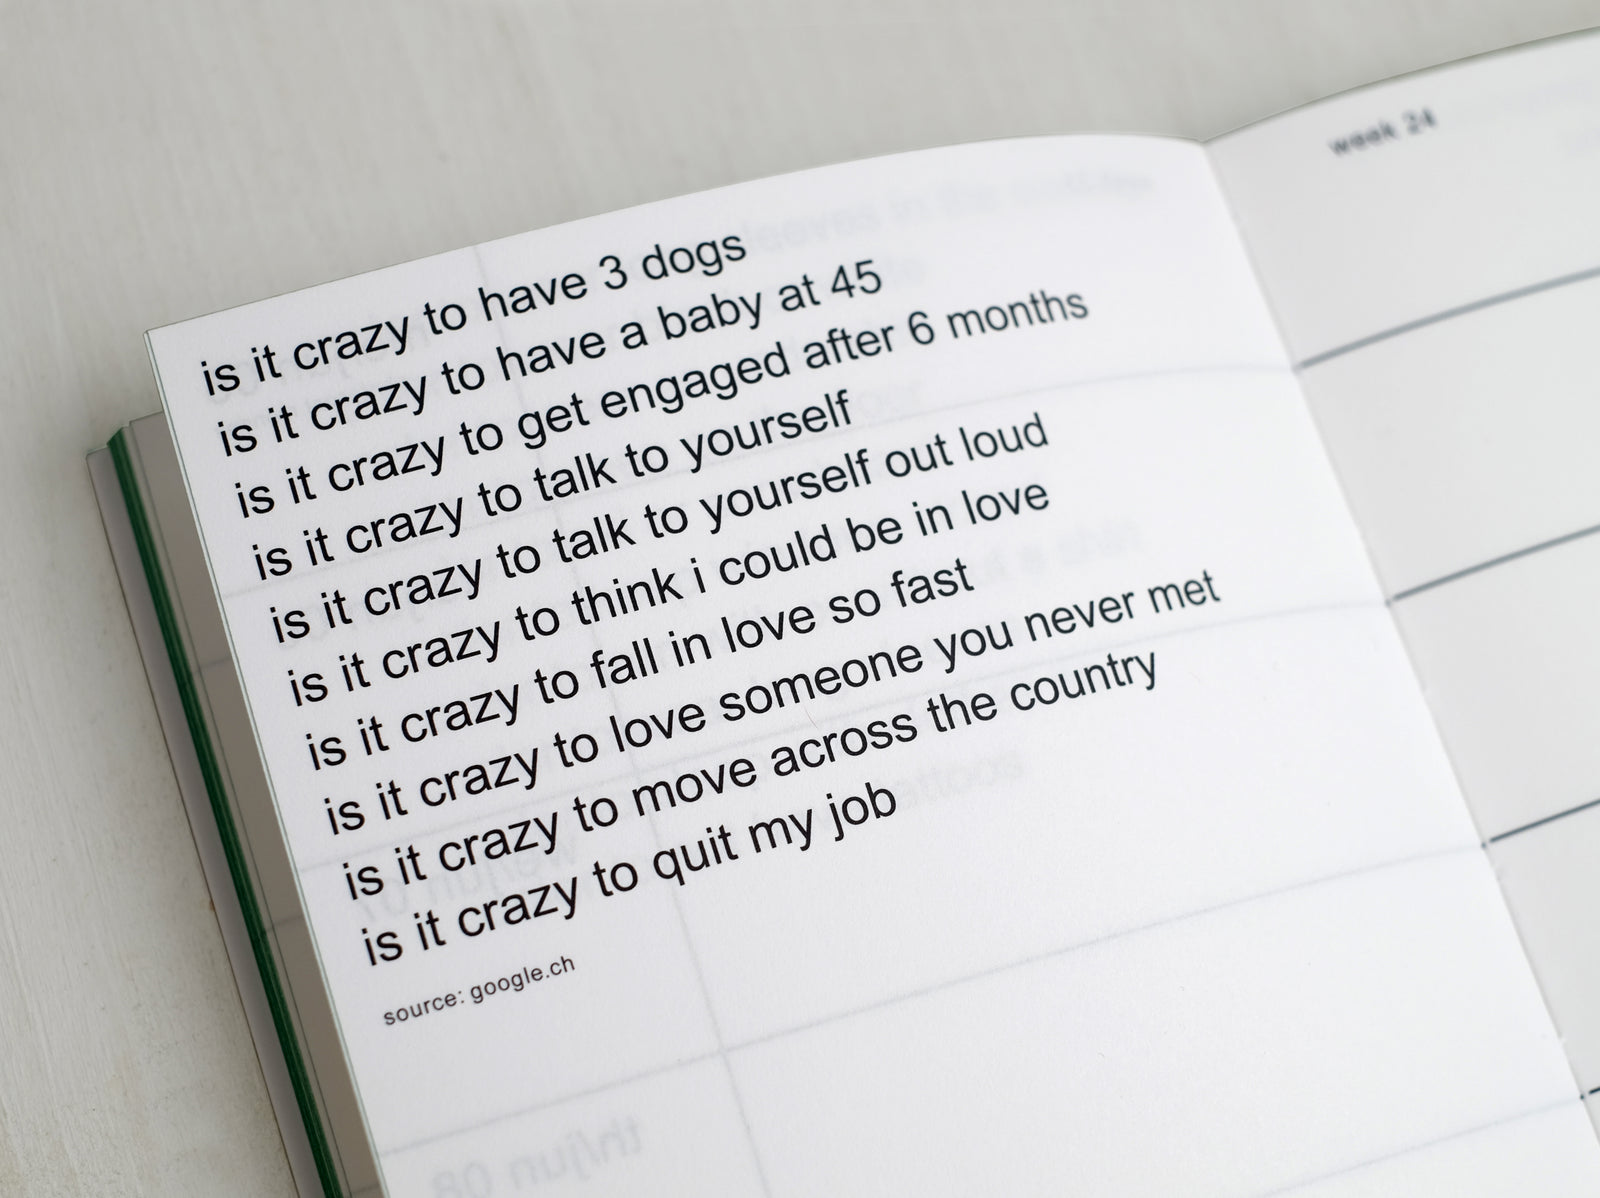 is it crazy to have 3 dogs
is it crazy to have a baby at 45
is it crazy to get engaged after 6 months
is it crazy to talk to yourself
is it crazy to talk to yourself out loud
is it crazy to think i could be in love
is it crazy to fall in love so fast
is it crazy to love someone you never met
is it crazy to move across the country
is it crazy to quit my job
source: google.ch
week 24
th/jun 08